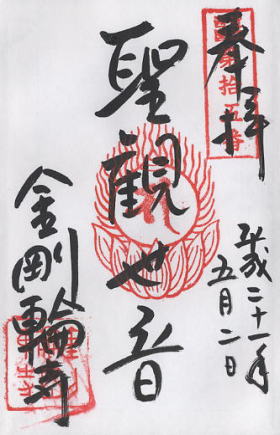 奉拝
第拾五番
平成二十一年
五月二日
聖観世音
金剛輪寺